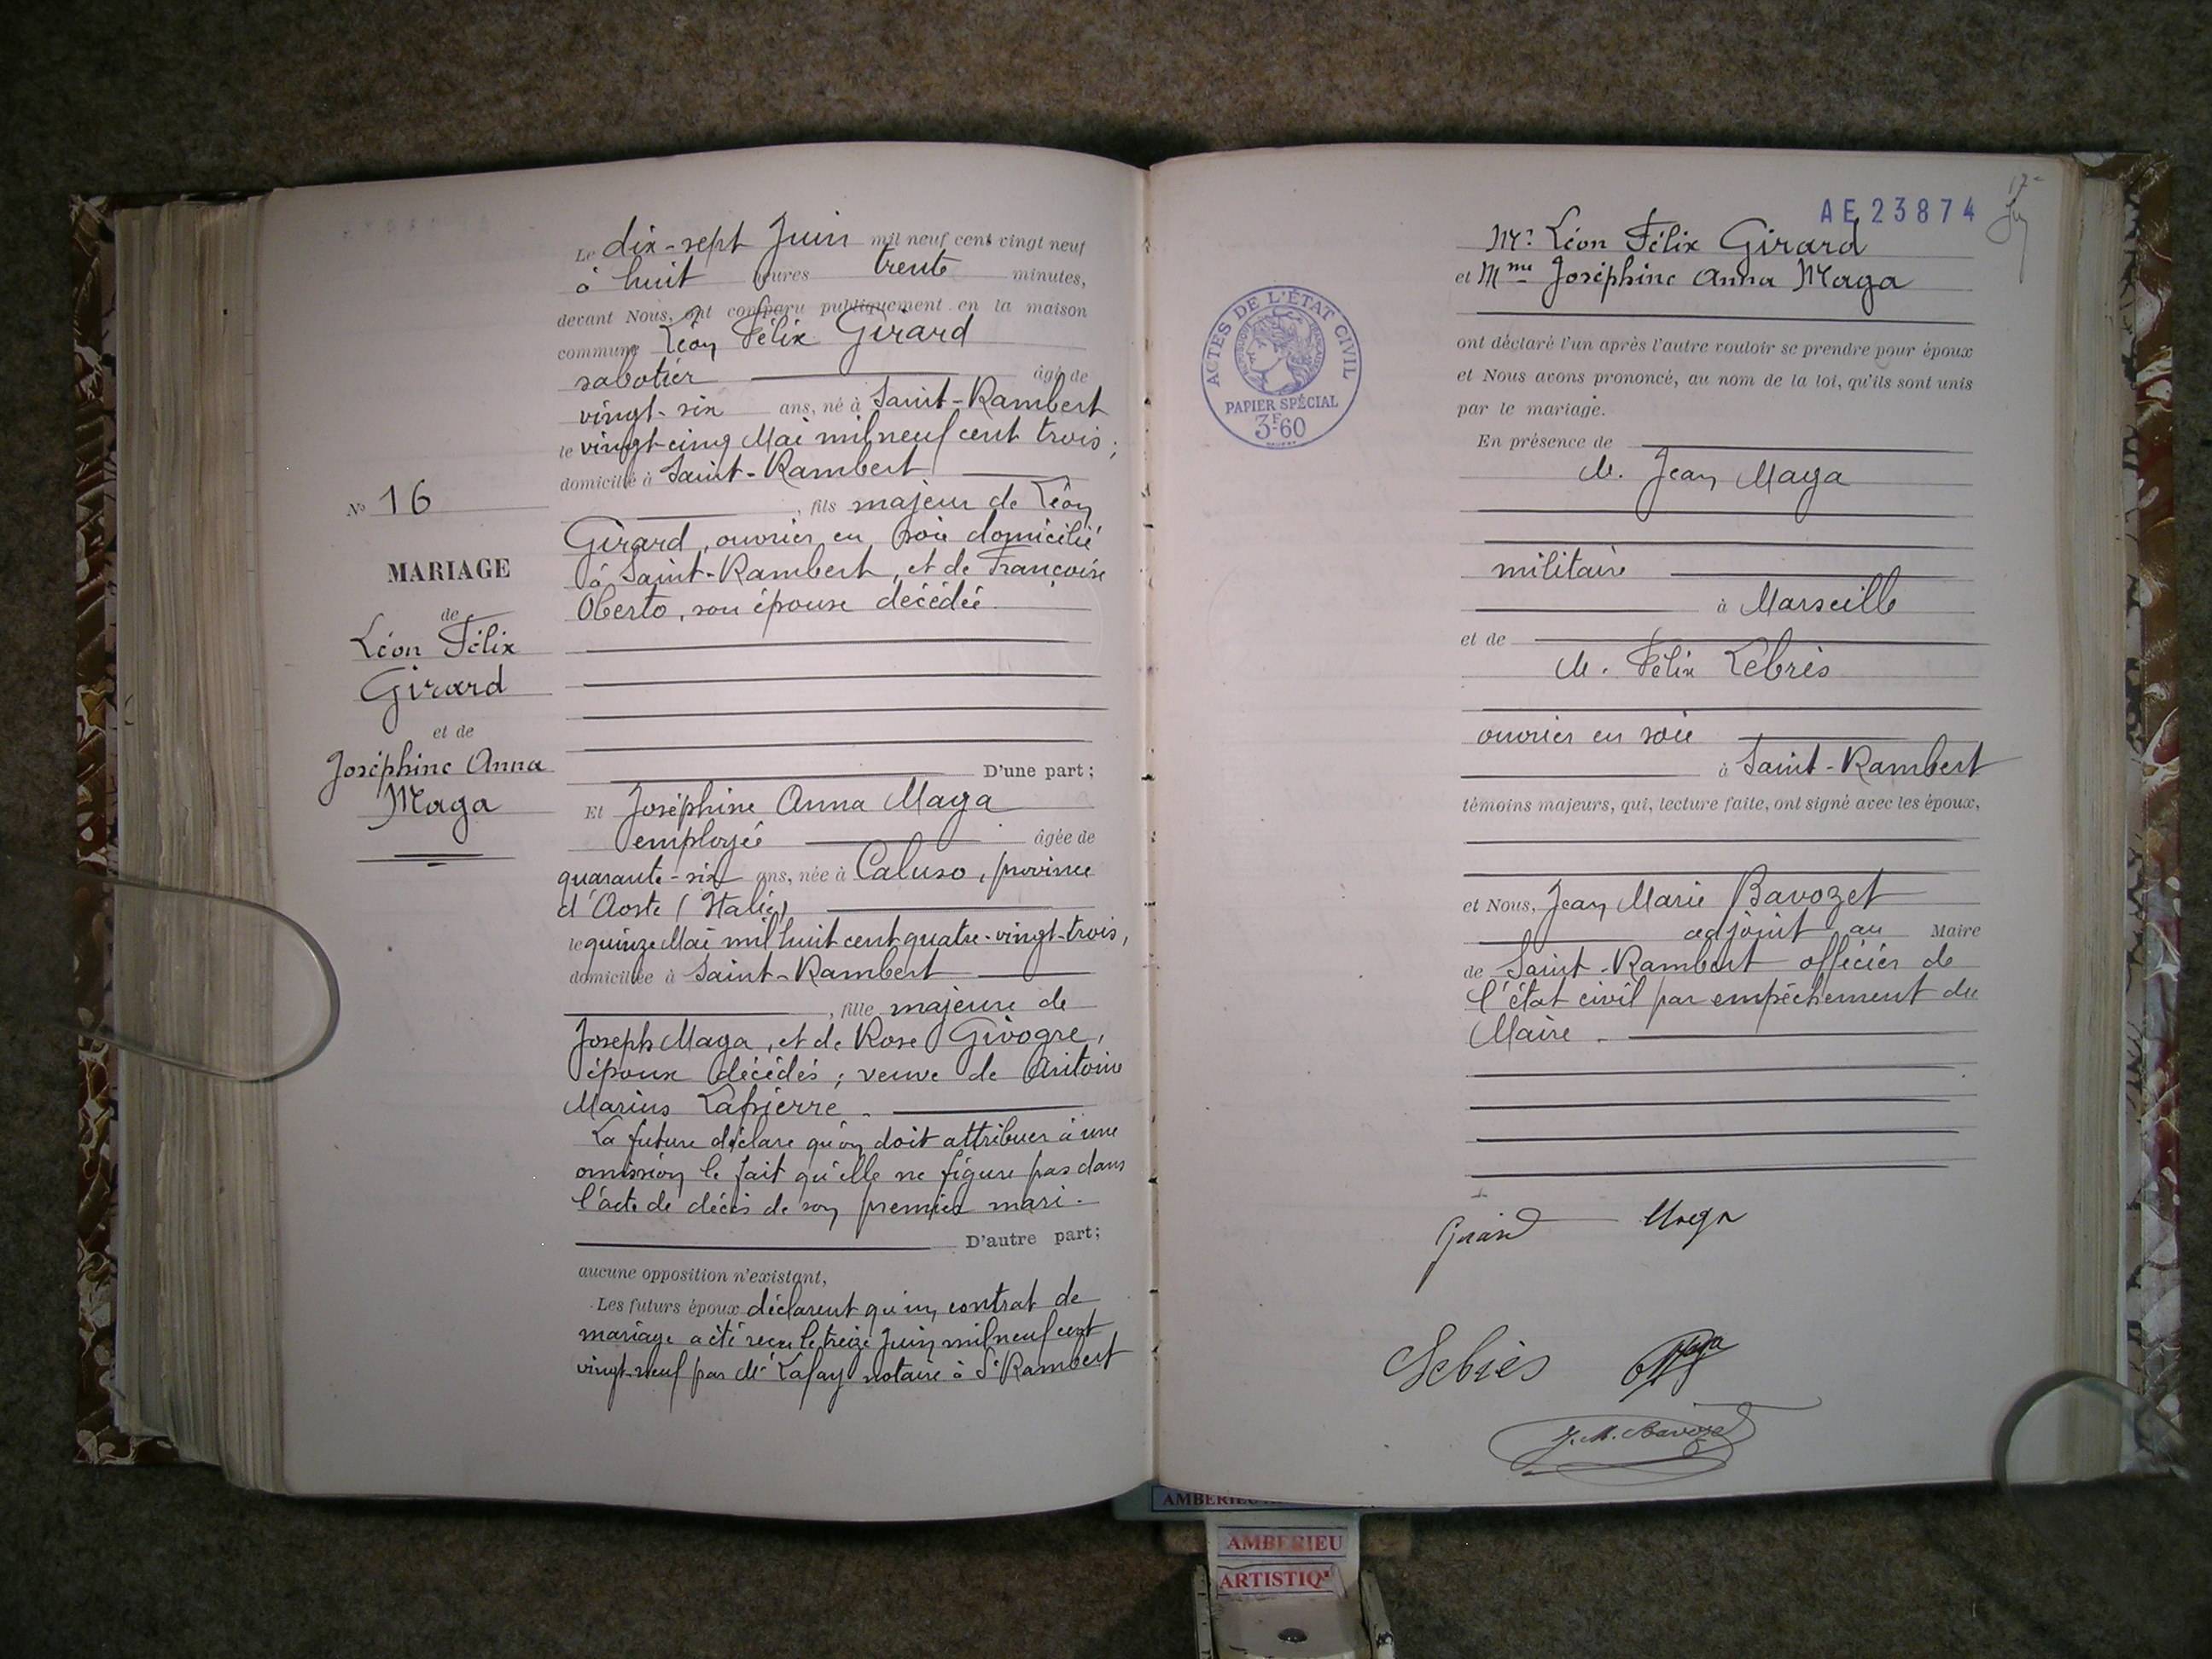 N° 16
MARIAGE
de
Léon Félix
Girard
et de
Joséphine Anna
Maga
Le dix-sept Juin mil neuf cent vingt neuf
à huit heures trente minutes,
devant Nous, ont comparu publiquement en la maison
commune Léon Félix Girard
sabotier âgé de
vingt-six ans, né à Saint-Rambert
le vingt-cinq Mai mil neuf cent trois ;
domicilié à Saint-Rambert
, fils majeur de Léon
Girard, ouvrier en soie domicilié
à Saint-Rambert, et de Françoise
Oberto, son épouse décédée
D'une part ;
Et Joséphine Anna Maga
employée âgée de
quarante-six ans, née à Caluso, province
d'Aoste (Italie)
le quinze Mai mil huit cent quatre-vingt-trois,
domiciliée à Saint-Rambert
, fille majeure de
Joseph Maga, et de Rose Givogre,
époux décédés ; veuve de Antoine
Marius Lapierre.
La future déclare qu'on doit attribuer à une
omission le fait qu'elle ne figure pas dans
l'acte de décès de son premier mari.
D'autre part ;
aucune opposition n'existant,
Les futurs époux déclarent qu'un contrat de
mariage a été reçu le treize Juin mil neuf cent
vingt-neuf par Me Lafay notaire à St Rambert
AE 23874
17
Mr. Léon Félix Girard
et Mme Joséphine Anna Maga
ACTES DE L'ÉTAT CIVIL
PAPIER SPÉCIAL
3F60
ont déclaré l'un après l'autre vouloir se prendre pour époux
et Nous avons prononcé, au nom de la loi, qu'ils sont unis
par le mariage.
En présence de
M. Jean Maga
militaire
à Marseille
et de
M. Félix Lebrès
ouvrier en soie
à Saint-Rambert
témoins majeurs, qui, lecture faite, ont signé avec les époux,
et Nous, Jean Marie Bavozet
adjoint au Maire
de Saint-Rambert officier de
l'état civil par empêchement du
Maire.
Girard Maga
Lebrès Maga
J. M. Bavozet
AMBERIEU
AMBERIEU
ARTISTIQ